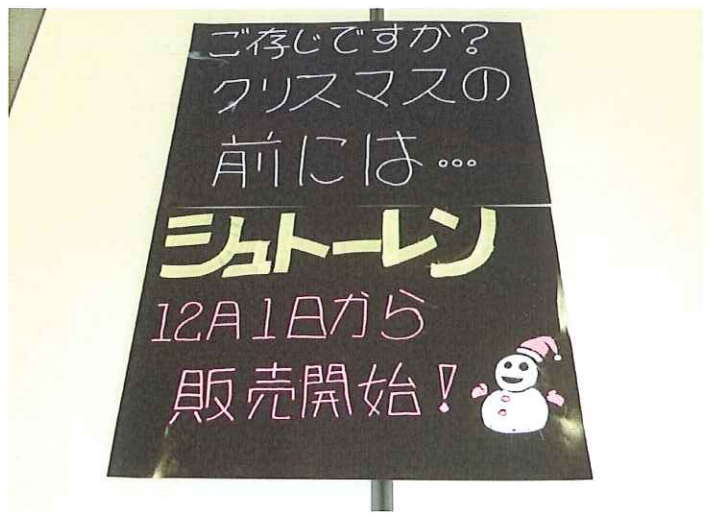 ご存じですか?
クリスマスの
前には…
シュトーレン
12月1日から
販売開始!